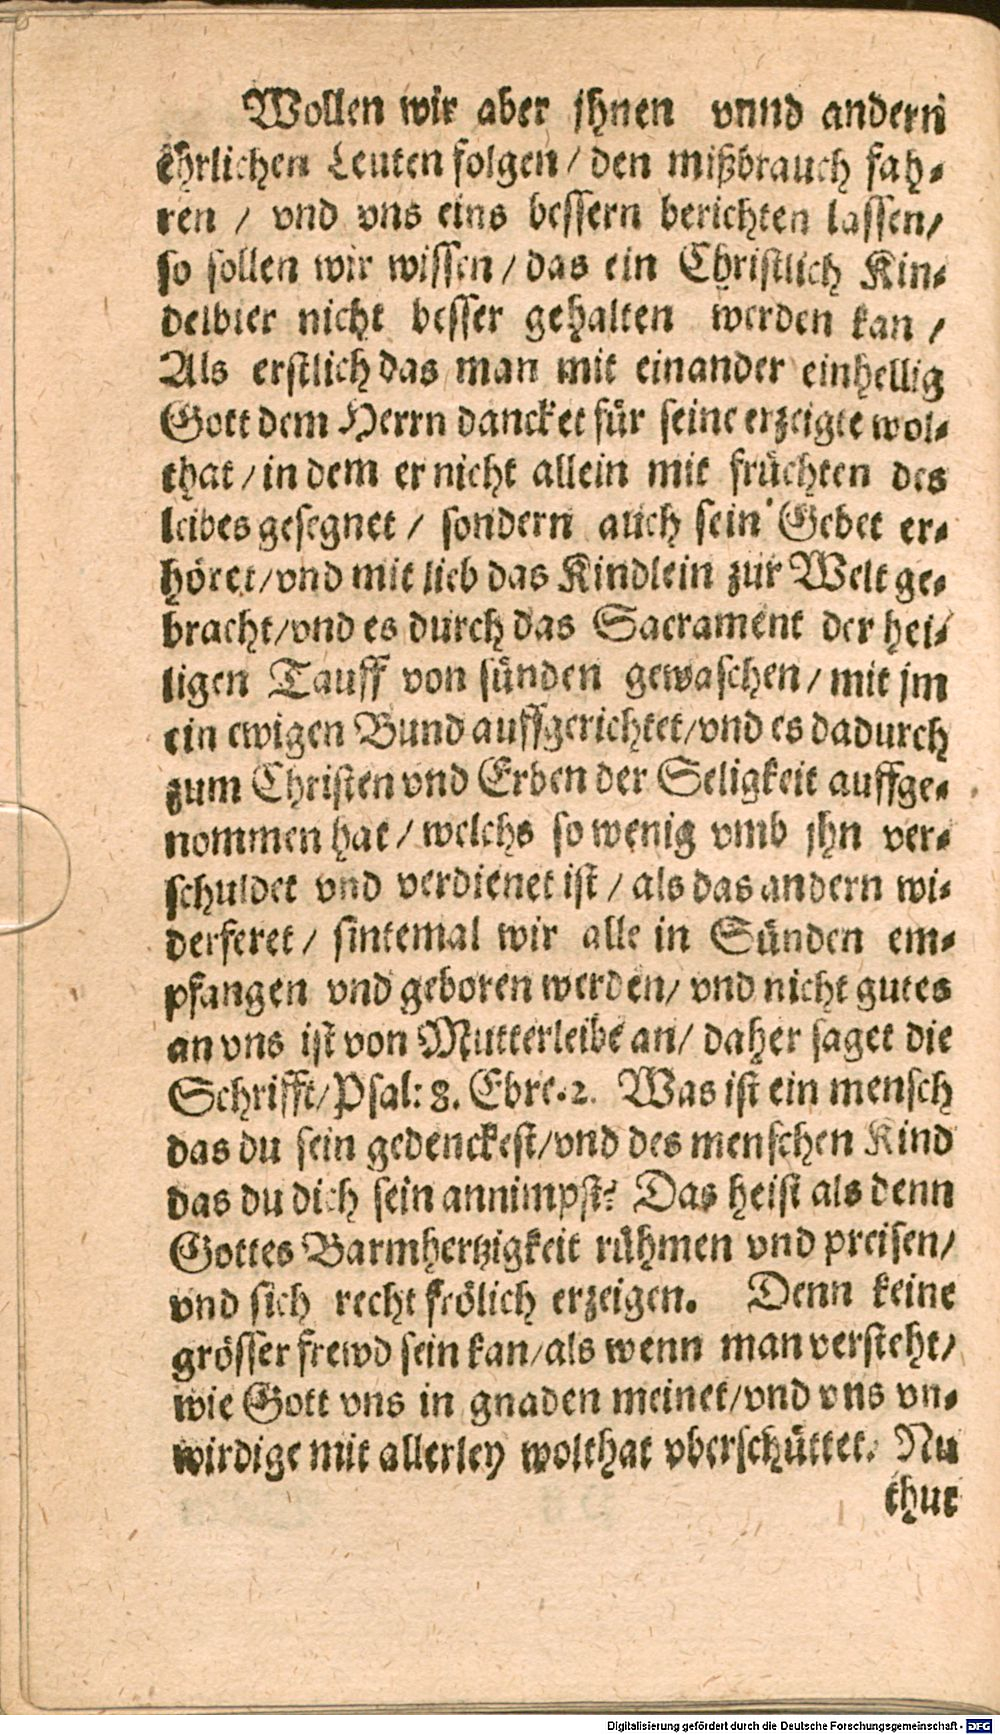 Wollen wir aber jhnen vnnd andern
ehrlichen Leuten folgen / den mißbrauch fah-
ren / vnd vns eins bessern berichten lassen/
so sollen wir wissen / das ein Christlich Kin-
delbier nicht besser gehalten werden kan /
Als erstlich das man mit einander einhellig
Gott dem Herrn dancket für seine erzeigte wol-
that / in dem er nicht allein mit früchten des
leibes gesegnet / sondern auch sein Gebet er-
höret/vnd mit lieb das Kindlein zur Welt ge-
bracht/vnd es durch das Sacrament der hei-
ligen Tauff von sünden gewaschen / mit jm
ein ewigen Bund auffgerichtet/vnd es dadurch
zum Christen vnd Erben der Seligkeit auffge-
nommen hat / welchs so wenig vmb jhn ver-
schuldet vnd verdienet ist / als das andern wi-
derferet / sintemal wir alle in Sünden em-
pfangen vnd geboren werden/ vnd nicht gutes
an vns ist von Mutterleibe an/ daher saget die
Schrifft/Psal: 8. Ebre.2. Was ist ein mensch
das du sein gedenckest/vnd des menschen Kind
das du dich sein annimpst? Das heist als denn
Gottes Barmhertzigkeit rühmen vnd preisen/
vnd sich recht frölich erzeigen. Denn keine
grösser frewd sein kan/als wenn man versteht/
wie Gott vns in gnaden meinet/vnd vns vn-
wirdige mit allerley wolthat vberschüttet. Nu
thut
Digitalisierung gefördert durch die Deutsche Forschungsgemeinschaft - DFG